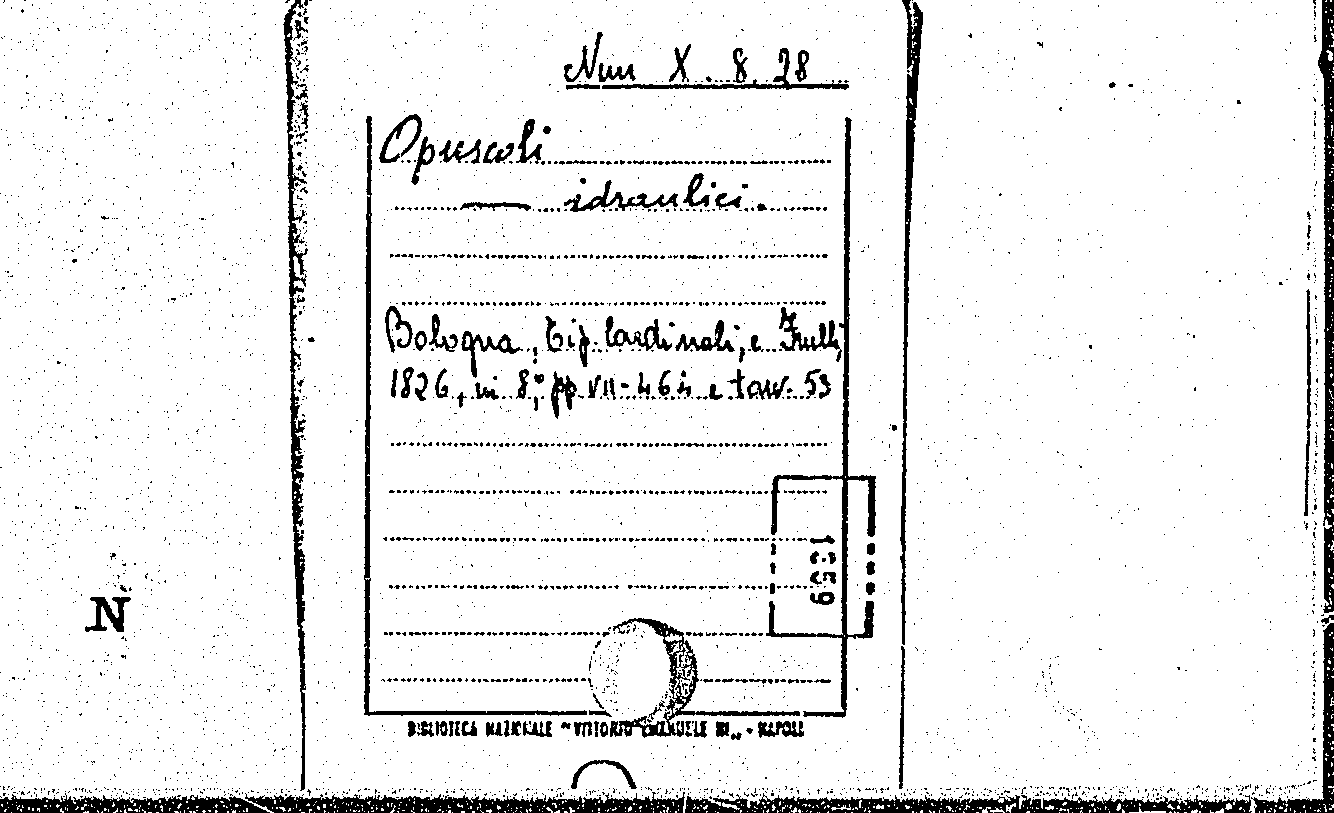 Nun X. 8. 28
Opuscoli
— idraulici.
Bologna, Tip. Cardinali, e Frulli,
1826, in 8°, pp. VII-464 e tav. 53
1359
N
BIBLIOTECA NAZIONALE "VITTORIO EMANUELE III„ - NAPOLI